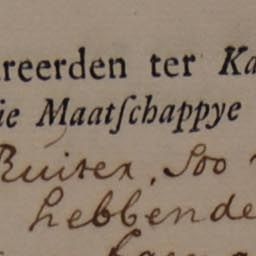 reerden ter Ka
ie Maatſchappye
Ruiter, Soo
hebbende